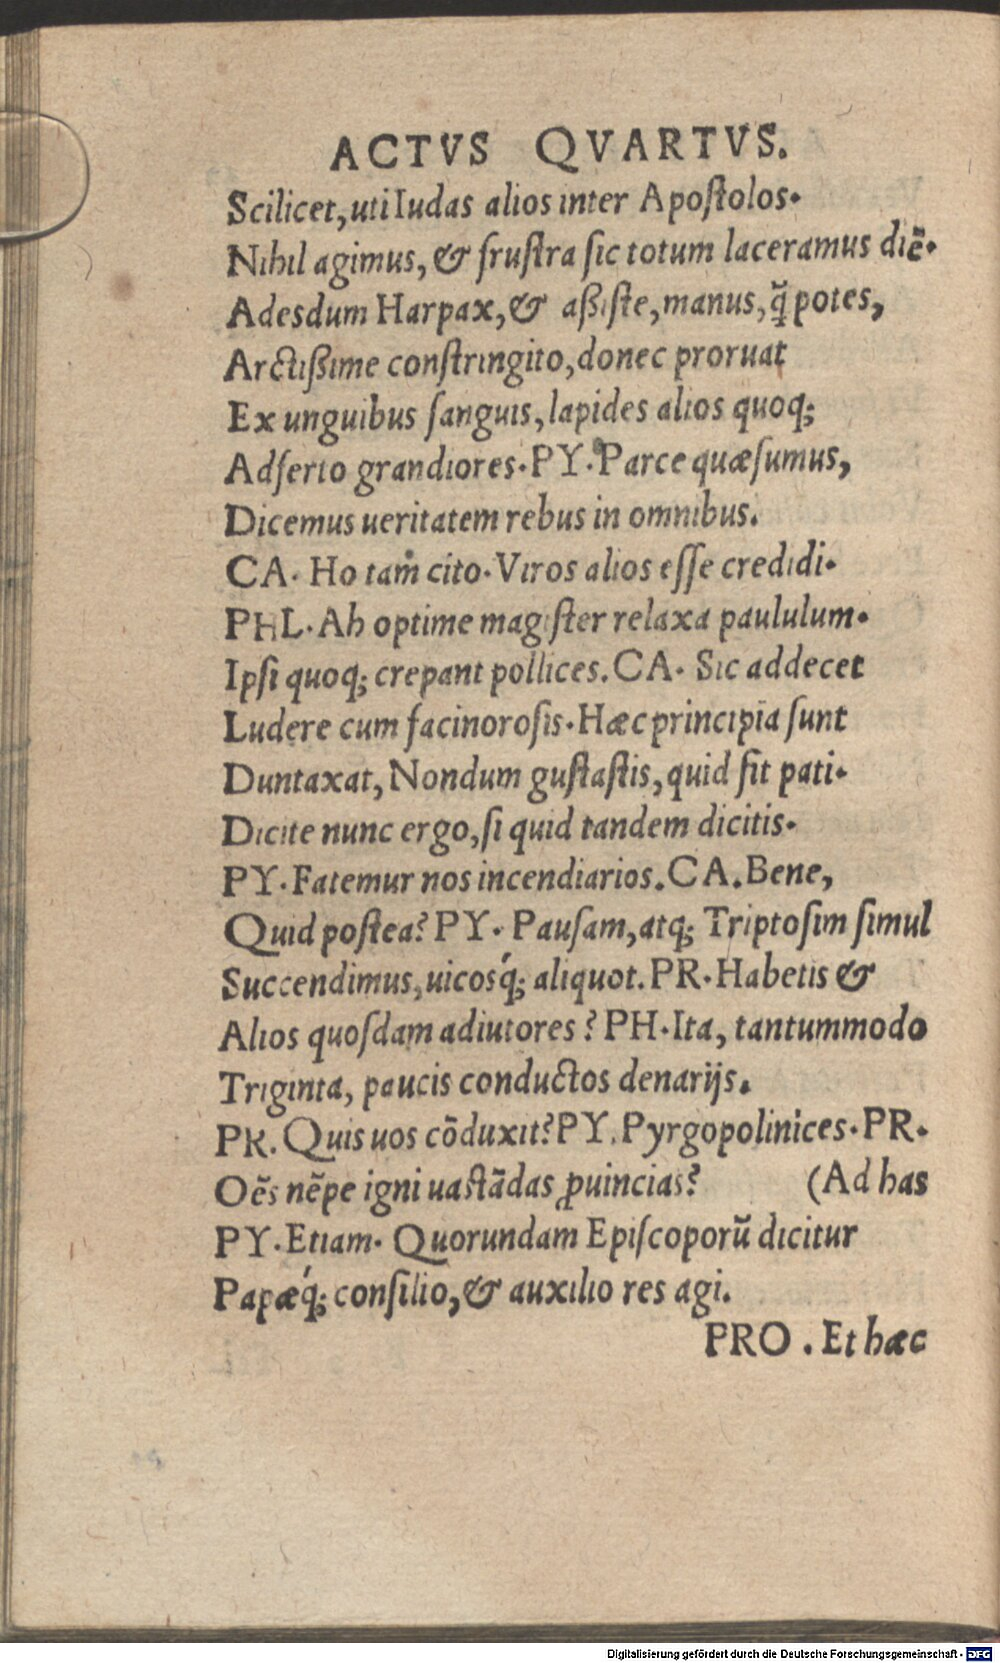 ACTVS QVARTVS.
Scilicet, uti Iudas alios inter Apostolos.
Nihil agimus, & frustra sic totum laceramus diē.
Adesdum Harpax, & aßiste, manus, q̃ potes,
Arctißime constringito, donec proruat
Ex unguibus sanguis, lapides alios quoq;
Adferto grandiores. PY. Parce quæsumus,
Dicemus ueritatem rebus in omnibus.
CA. Ho tam cito. Viros alios esse credidi.
PHL. Ah optime magister relaxa paululum.
Ipsi quoq; crepant pollices. CA. Sic addecet
Ludere cum facinorosis. Hæc principia sunt
Duntaxat, Nondum gustastis, quid sit pati.
Dicite nunc ergo, si quid tandem dicitis.
PY. Fatemur nos incendiarios. CA. Bene,
Quid postea? PY. Pausam, atq; Triptosim simul
Succendimus, uicosq́; aliquot. PR. Habetis &
Alios quosdam adiutores? PH. Ita, tantummodo
Triginta, paucis conductos denarijs.
PR. Quis uos cōduxit? PY. Pyrgopolinices. PR.
Oēs nēpe igni uastādas ꝓuincias? (Ad has
PY. Etiam. Quorundam Episcoporū dicitur
Papæq́; consilio, & auxilio res agi.
PRO. Et hæc
Digitalisierung gefördert durch die Deutsche Forschungsgemeinschaft - DFG